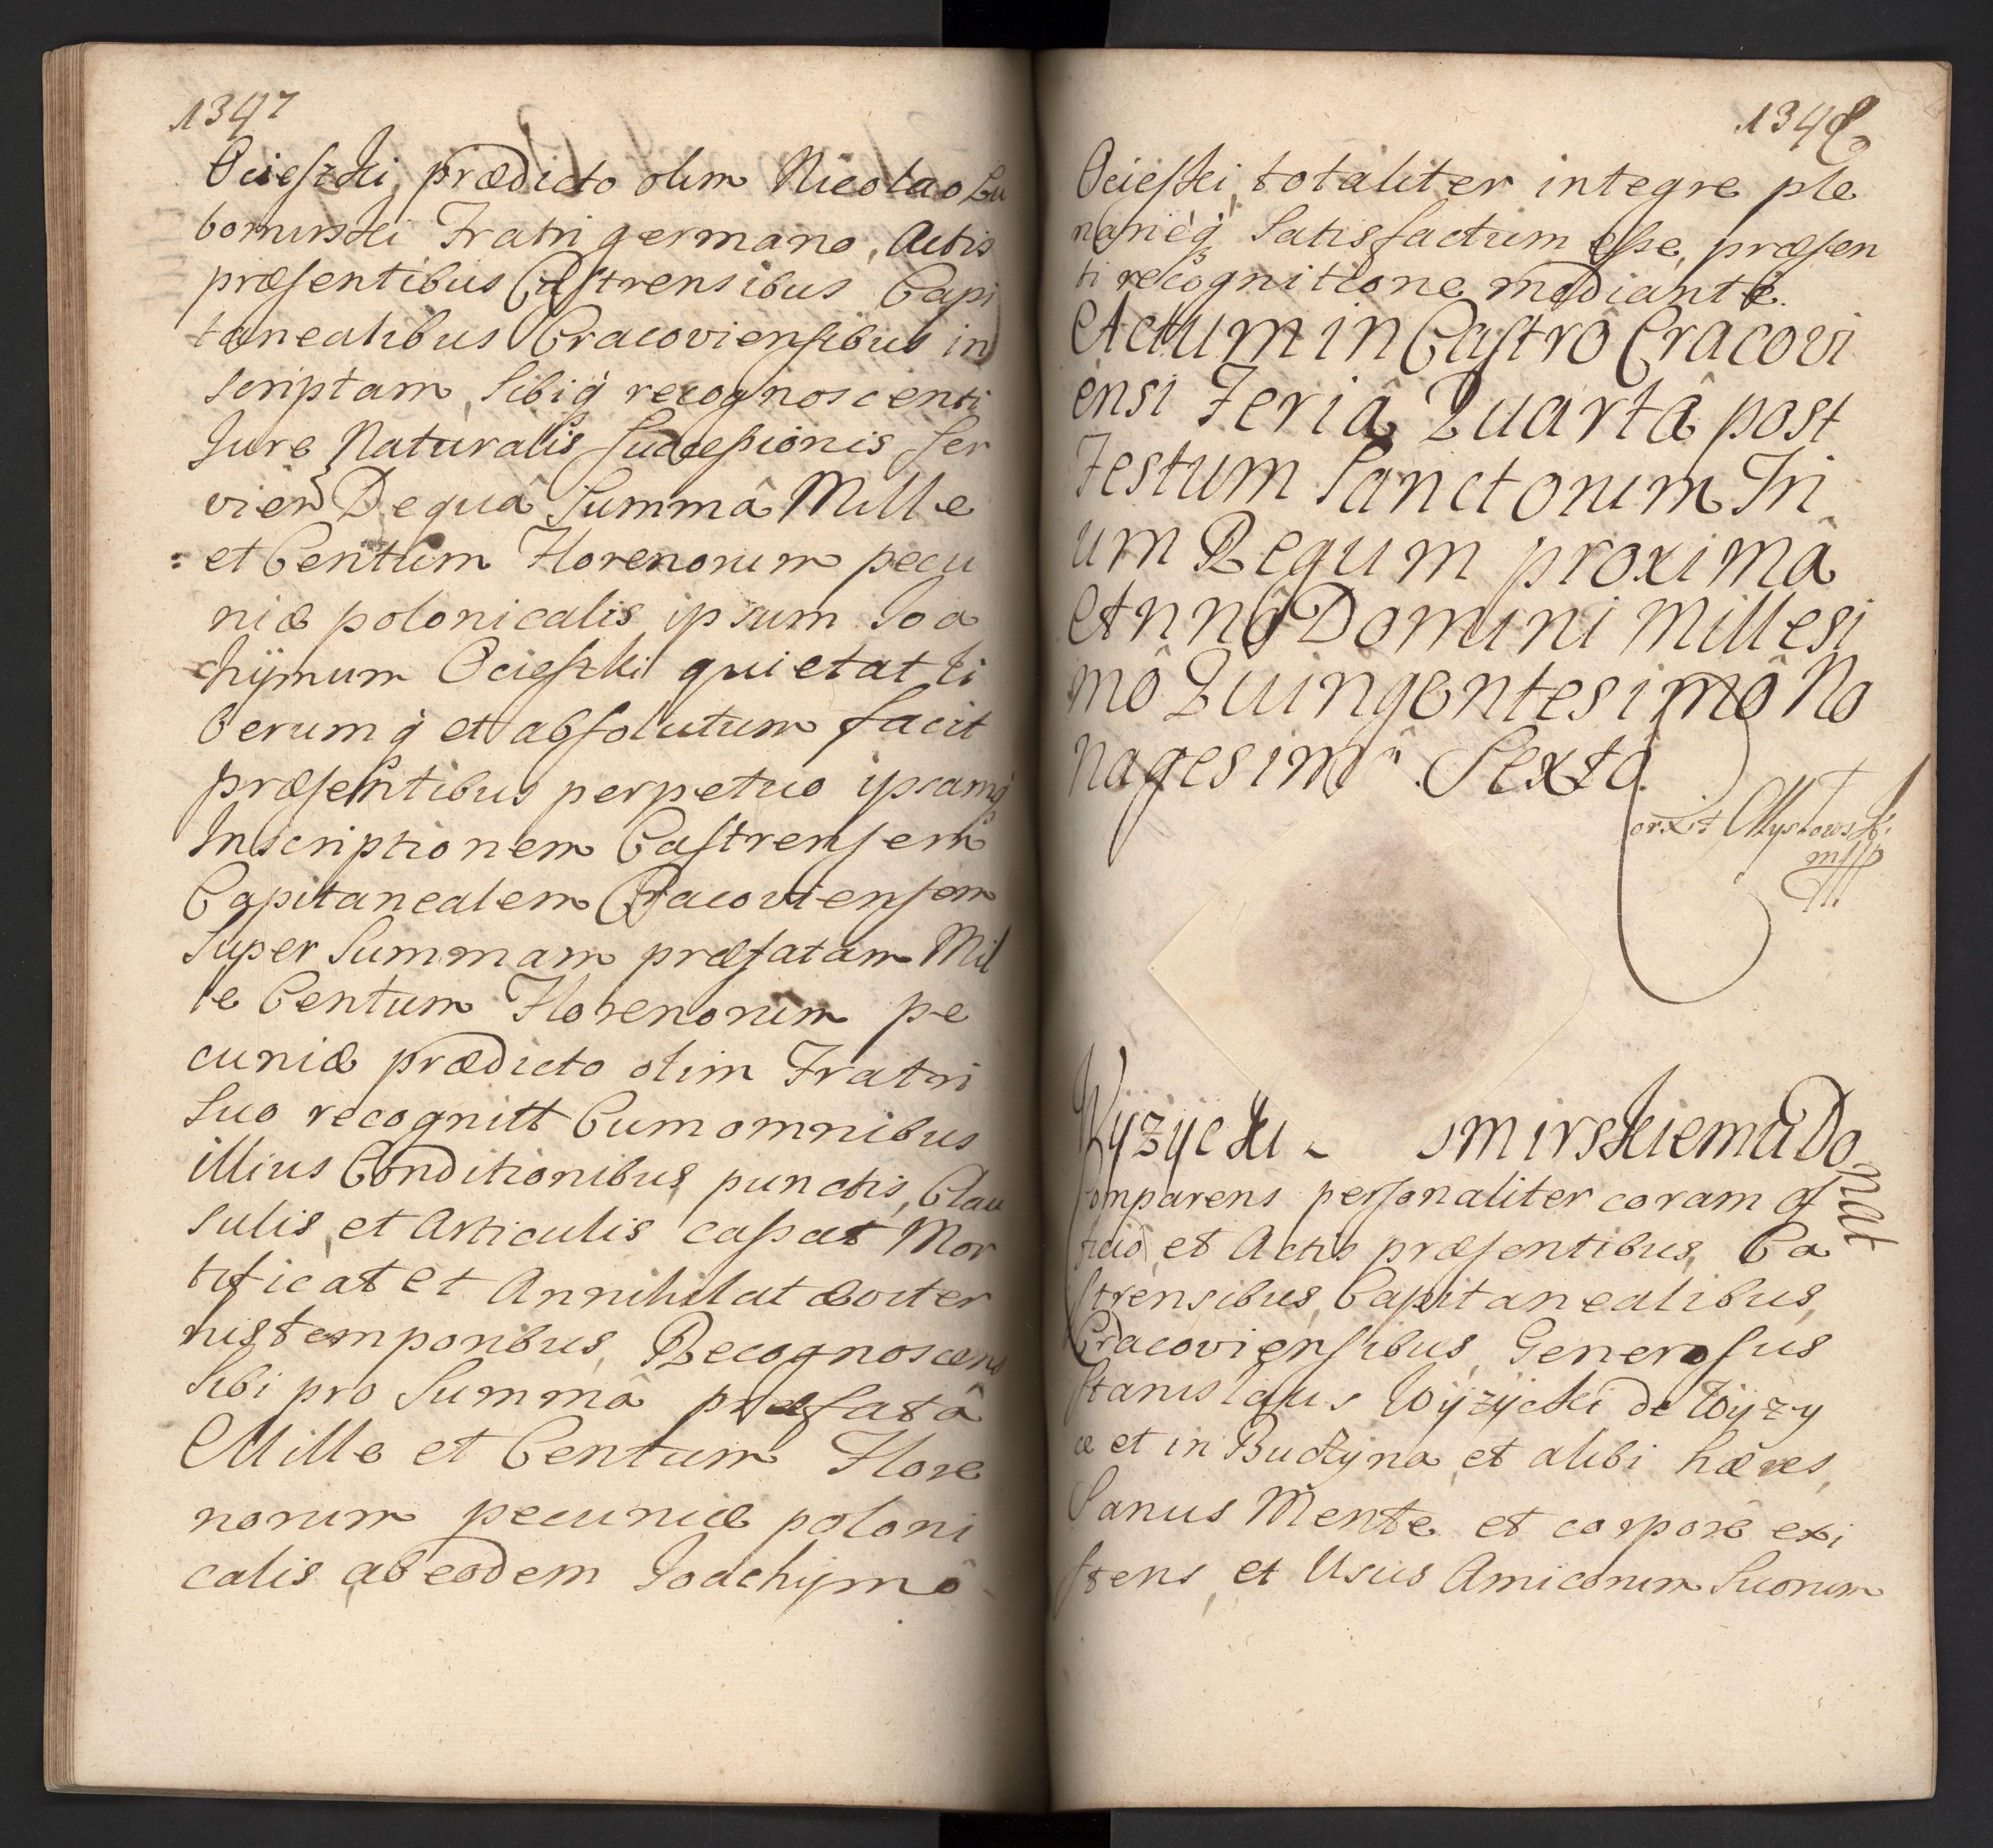 1347
Ocieszki, prædicto olim Nicolao Lu
bomirski Fratri germano, Actis
præsentibus Castrensibus Capi
tanealibus Cracoviensibus in
scriptam, Sibiq́ recognoscenti
Jure Naturalis Successionis ser
vien De quâ Summâ Mille
et Centum Florenorum pecu
niæ polonicalis ipsum Joa
chÿmum Ocieszki quietat li
berumq́ et absolutum facit
præsentibus perpetuo ipsamq́
Inscriptionem Castrensem
Capitanealem Cracoviensem
Super Summam præfatam Mil
le Centum Florenorum pe
cuniæ prædicto olim Fratri
Suo recognitt Cum omnibus
illius Conditionibus, punctis, Clau
sulis, et Articulis cassat Mor
tificat et Annihilat æviter
nis temporibus, Recognoscens
Sibi pro Summâ præfatâ
Mille et Centum Flore
norum pecuniæ poloni
calis ab eodem Joachÿmô
1348
Ocieski, totaliter integre ple
narieq́ Satisfactum esse, præsen
ti recognitione mediante.
Actum in Castrô Cracovi
ensi Feriâ Quartâ post
Festum Sanctorum Tri
um Regum proximâ
Annô Domini Millesi
mô Quingentesimô No
nagesimô Sextô.
mpp
Wÿżÿcki mirskiemu Do
nat
Comparens personaliter coram of
ficio, et Actis præsentibus, Ca
strensibus, Capitanealibus,
Cracoviensibus, Generosus
Stanislaus Wÿżÿcki de Wÿz̈y
ce et in Budzÿna, et alibi hæres,
Sanus Mente et corpore exi
stens, et Usus Amicorum Suorum